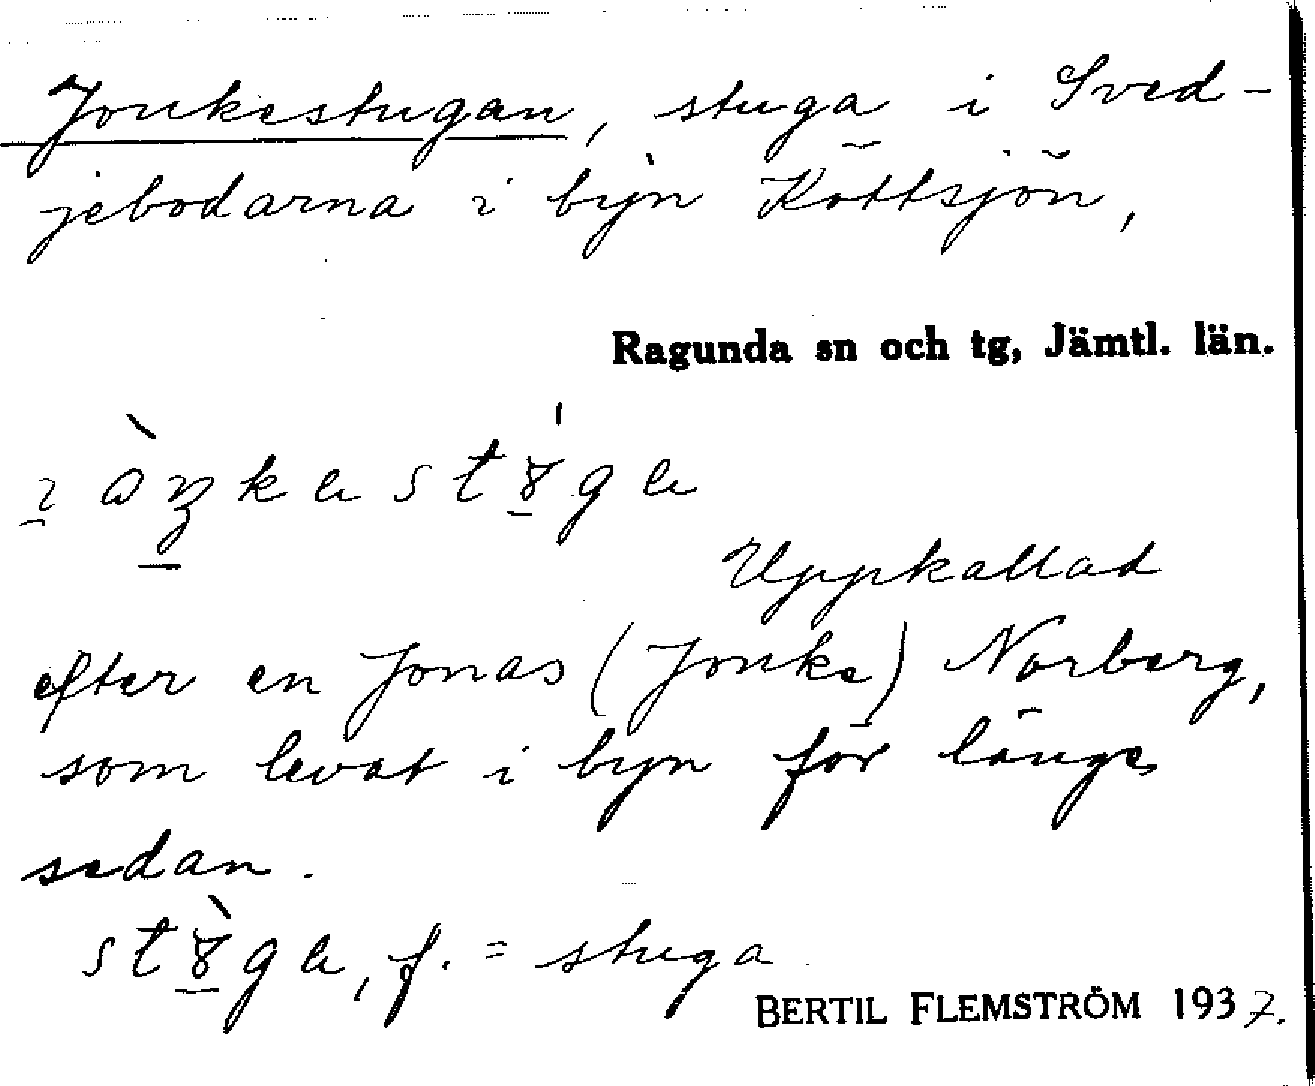 Jonkestugan, stuga i Sved-
jebodarna i byn Köttsjön,
Ragunda sn och tg, Jämtl. län.
Uppkallad
efter en Jonas (Jonke) Norberg,
som levat i byn för länge
sedan.
f. = stuga
BERTIL FLEMSTRÖM 1937.